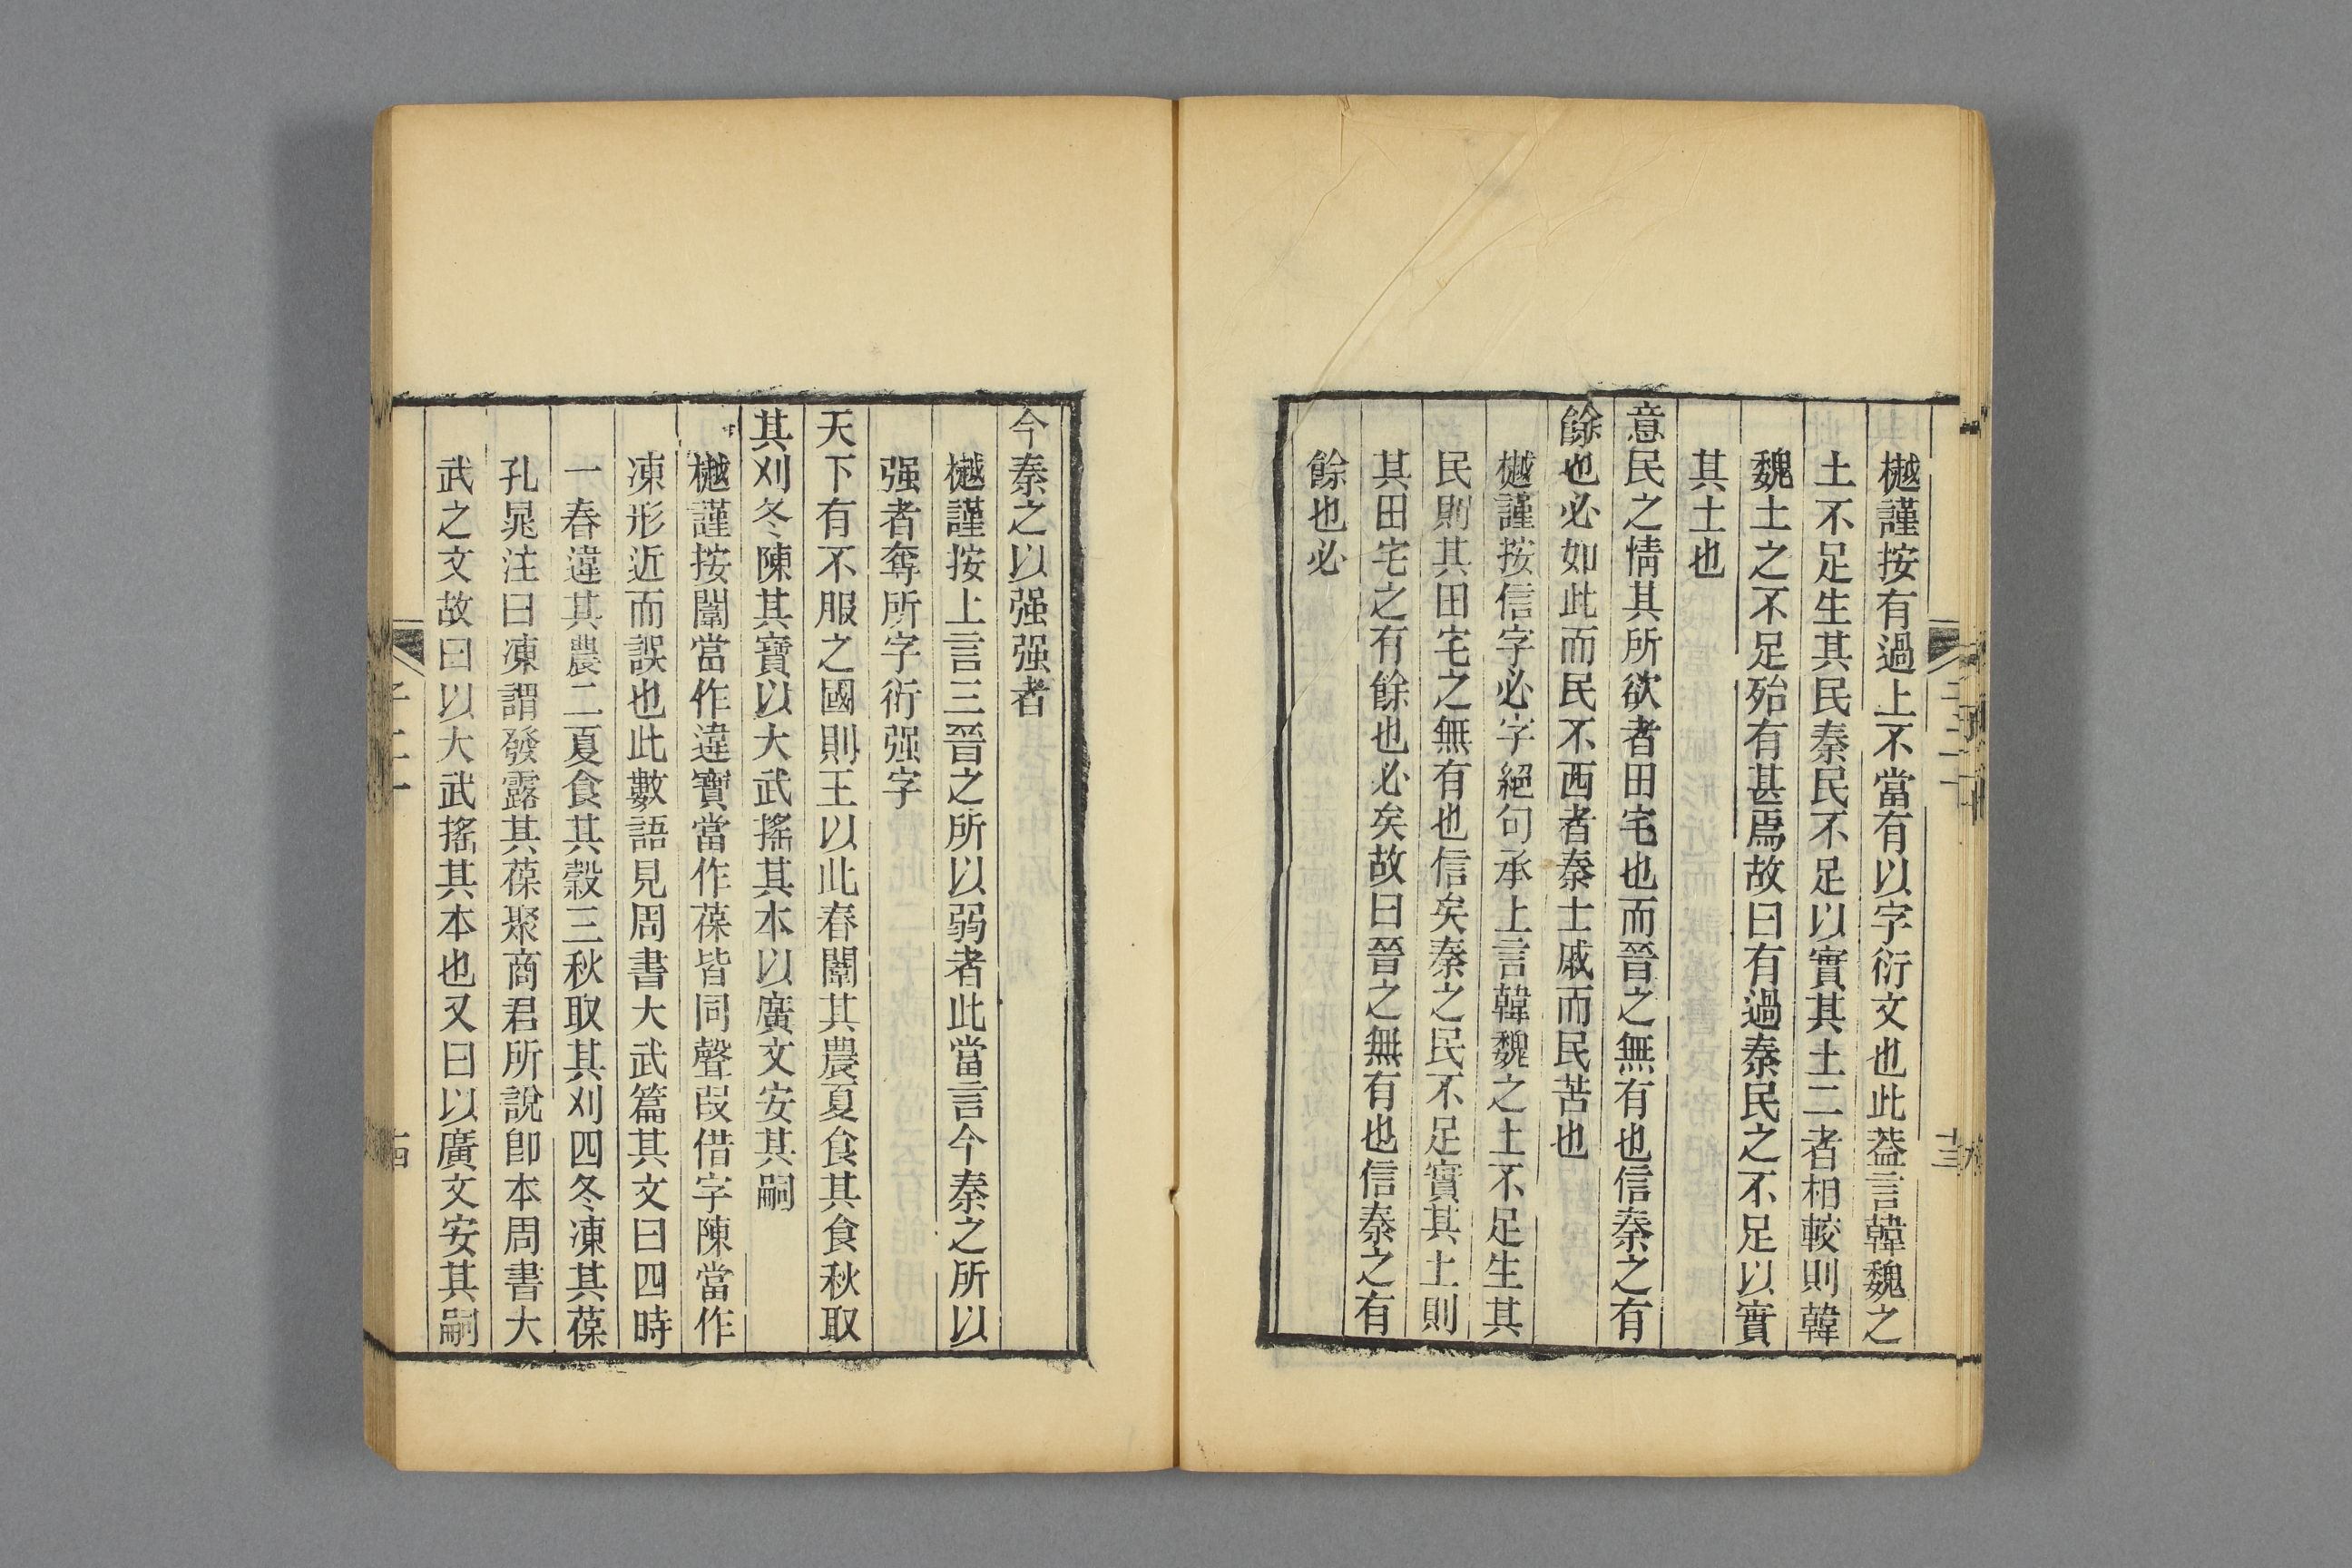 樾謹按有過上不當有以字衍文也此葢言韓魏之
土不足生其民秦民不足以實其土二者相較則韓
魏土之不足殆有甚焉故曰有過秦民之不足以實
其土也
意民之情其所欲者田宅也而晉之無有也信秦之有
餘也必如此而民不西者秦士戚而民苦也
樾謹按信字必字絕句承上言韓魏之土不足生其
民則其田宅之無有也信矣秦之民不足實其土則
其田宅之有餘也必矣故曰晉之無有也信秦之有
餘也必
今秦之以强强者
樾謹按上言三晉之所以弱者此當言今秦之所以
强者奪所字衍强字
天下有不服之國則王以此春闈其農夏食其食秋取
其刈冬陳其寶以大武搖其本以廣文安其嗣
樾謹按闈當作違寶當作葆皆同聲叚借字陳當作
凍形近而誤也此數語見周書大武篇其文曰四時
一春違其農二夏食其穀三秋取其刈四冬凍其葆
孔晁注曰凍謂發露其葆聚商君所說卽本周書大
武之文故曰以大武搖其本也又曰以廣文安其嗣